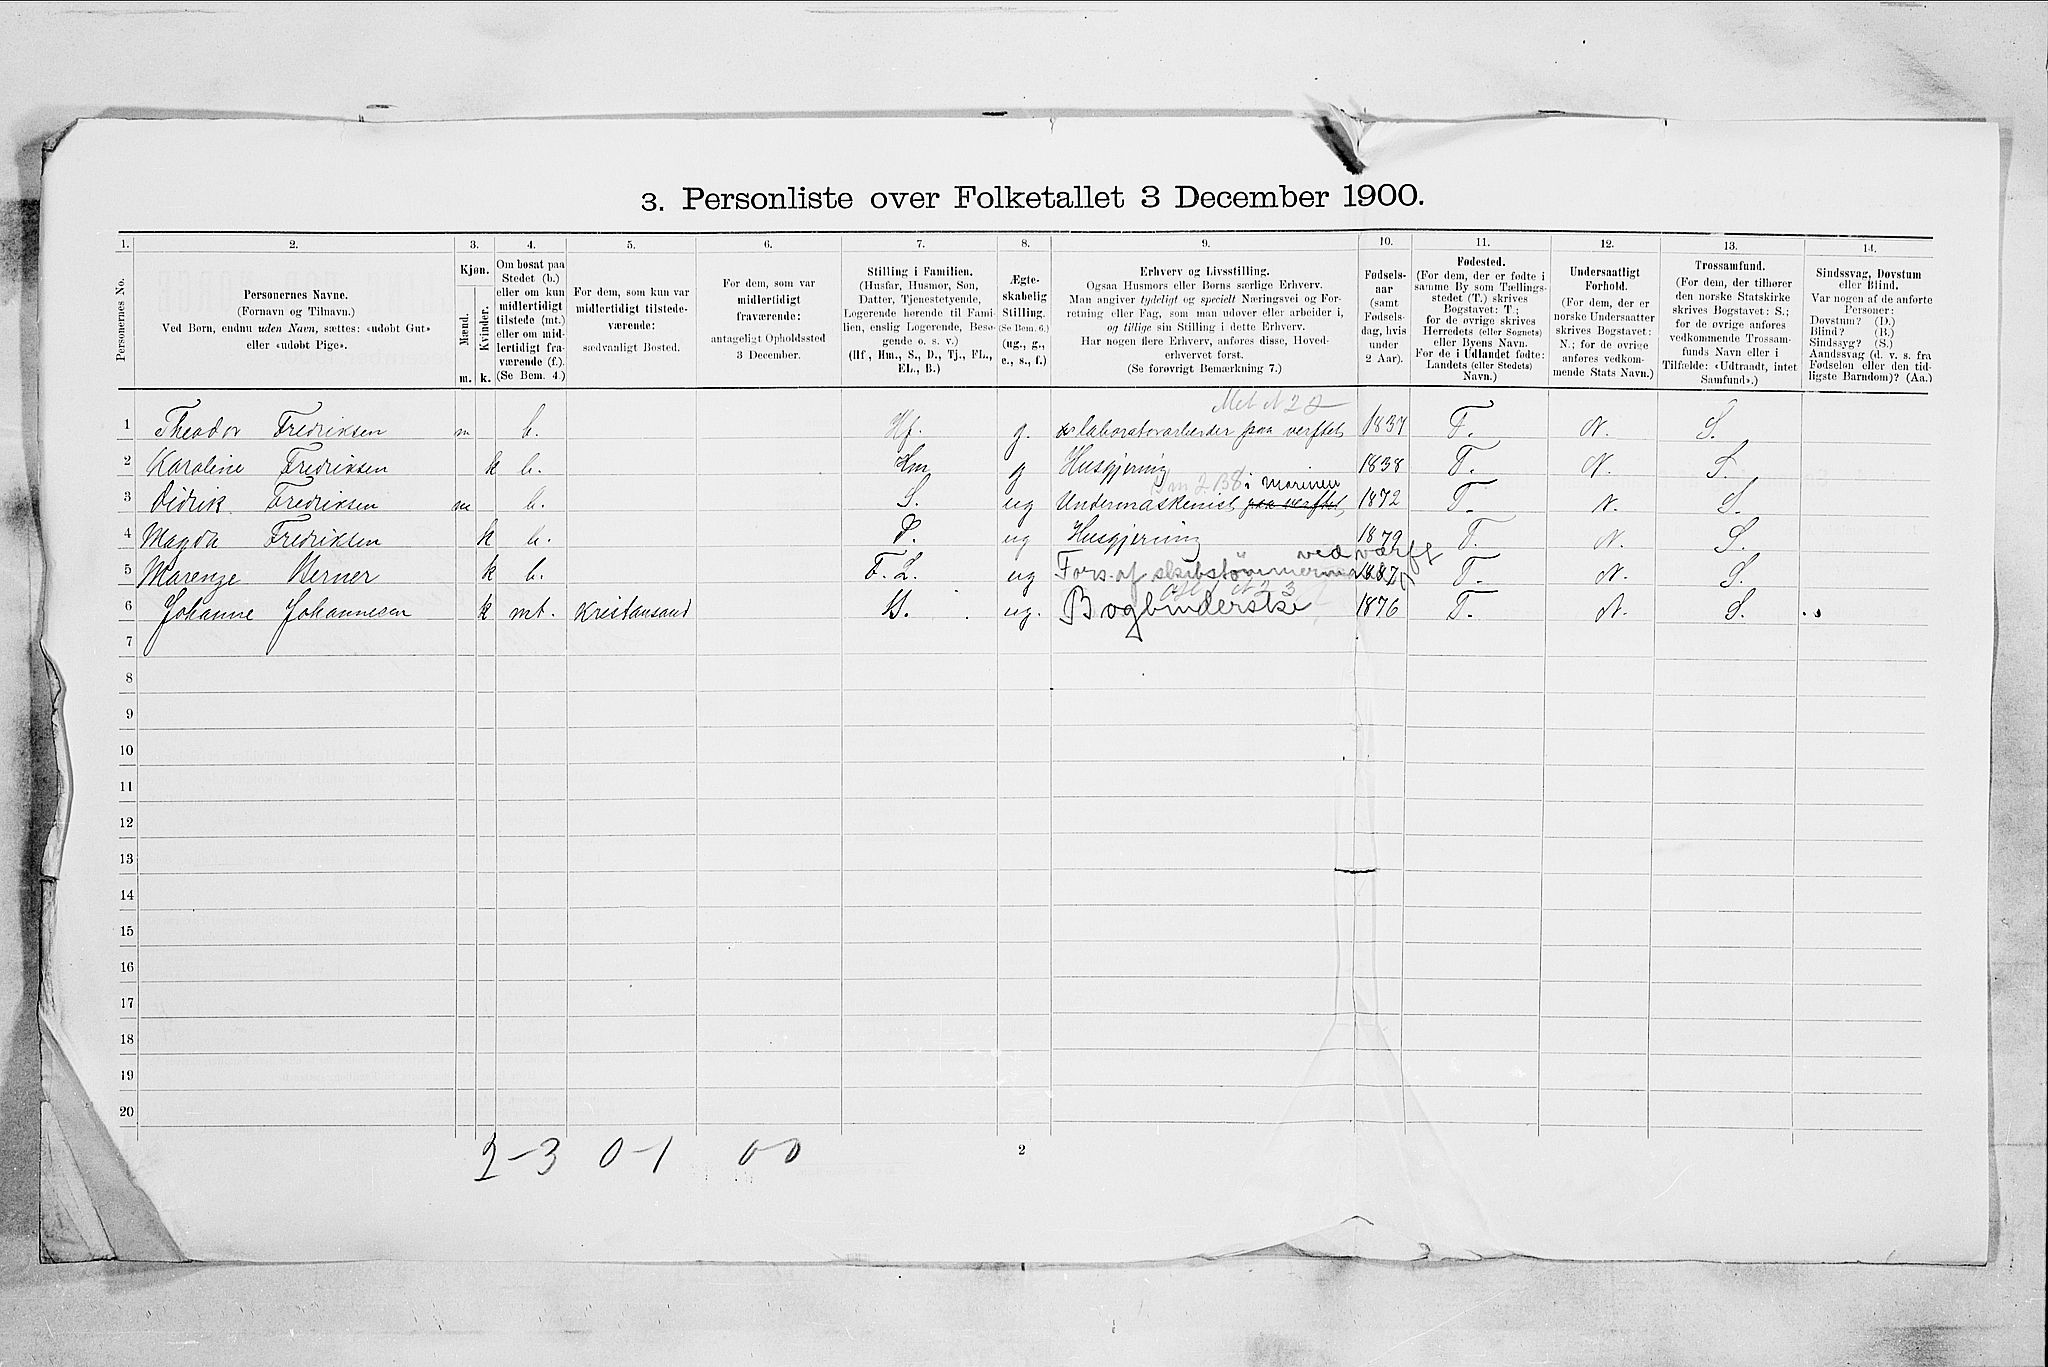 3. Personliste over Folketallet 3 December 1900.
1. 2. 3. 4. 5. 6. 7. 8. 9. 10. 11. 12. 13. 14.
Personernes No.
Personernes Navne.
(Fornavn og Tilnavn.)
Ved Børn, endnu uden Navn, sættes: «udøbt Gut»
eller «udøbt Pige».
Kjøn.
Mænd.
Kvinder.
m. k.
Om bosat paa
Stedet (b.)
eller om kun
midlertidigt
tilstede (mt.)
eller om mid-
lertidigt fra-
værende (f.).
(Se Bem. 4.)
For dem, som kun var
midlertidigt tilstede-
værende:
sædvanligt Bosted.
For dem, som var
midlertidigt
fraværende:
antageligt Opholdssted
3 December.
Stilling i Familien.
(Husfar, Husmor, Søn,
Datter, Tjenestetyende,
Logerende hørende til Fami-
lien, enslig Logerende, Besø-
gende o. s. v.)
(Hf., Hm., S., D., Tj., FL.,
EL., B.)
Ægte-
skabelig
Stilling.
(Se Bem. 6.)
(ug., g.,
e., s., f.)
Erhverv og Livsstilling.
Ogsaa Husmors eller Børns særlige Erhverv.
Man angiver tydeligt og specielt Næringsvei og For-
retning eller Fag, som man udover eller arbeider i,
og tillige sin Stilling i dette Erhverv.
Har nogen flere Erhverv, anføres disse, Hoved-
erhvervet først.
(Se forøvrigt Bemærkning 7.)
Fødsels-
aar
(samt
Fødsels-
dag, hvis
under
2 Aar).
Fødested.
(For dem, der er fødte i
samme By som Tællings-
stedet (T.) skrives
Bogstavet: T.;
for de øvrige skrives
Herredets (eller Sognets)
eller Byens Navn.
For de i Udlandet fødte:
Landets (eller Stedets)
Navn.)
Undersaatligt
Forhold.
(For dem, der er
norske Undersaatter
skrives Bogstavet:
N.; for de øvrige
anføres vedkom-
mende Stats Navn.)
Trossamfund.
(For dem, der tilhører
den norske Statskirke
skrives Bogstavet: S.;
for de øvrige anføres
vedkommende Trossam-
funds Navn eller i
Tilfælde: «Udtraadt, intet
Samfund».)
Sindssvag, Døvstum
eller Blind.
Var nogen af de anførte
Personer:
Døvstum? (D.)
Blind? (B.)
Sindssyg? (S.)
Aandssvag (d. v. s. fra
Fødselen eller den tid-
ligste Barndom)? (Aa.)
1 Theodor Fredriksen m b. Hf. g. laboratorarbeider paa verftet 1837 T. N. S.
2 Karoline Fredriksen k b. Hm g Husgjerning 1838 T. N. S.
i marinen
3 Didrik Fredriksen m b. S. ug Undermaskenist paa verftet 1872 T. N. S.
4 Magda Fredriksen k b. D. ug Husgjerning 1879 T. N. S.
ved værft
5 Marenze Werner k b. F. L. ug Fors. af skibstømmermand T. N. S.
6 Johanne Johannesen k mt. Kristansand B. ug. Bogbinderske 1876 T. N. S.
7
8
9
10
11
12
13
14
15
16
17
18
19
20
2-3 0-1 0-0
2